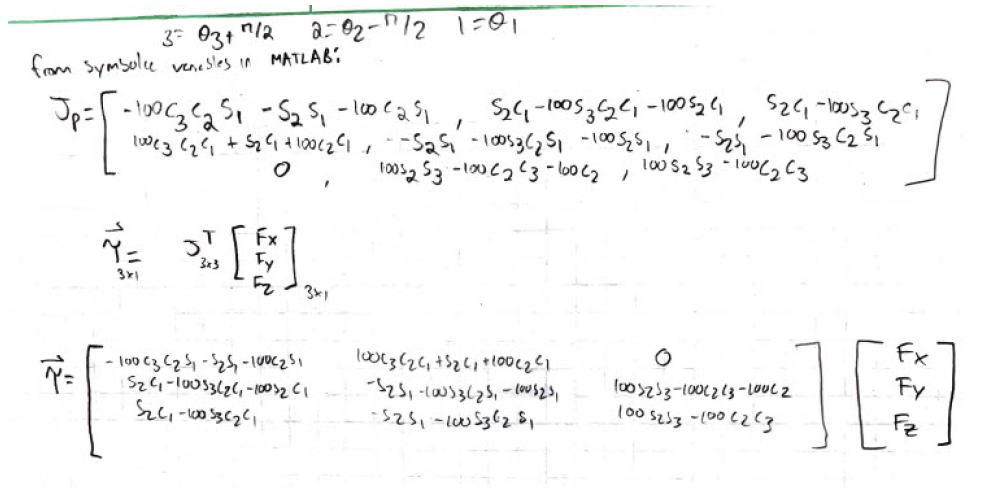 3= θ3+ π/2 2=θ2-π/2 1=θ1
from symbolic variables in MATLAB:
Jp=[ -100C3C2S1 -S2S1 -100C2S1 , S2C1-100S3C2C1-100S2C1 , S2C1-100S3C2C1
100C3C2C1 + S2C1+100C2C1 , --S2S1 -100S3C2S1 -100S2S1 , -S2S1 - 100S3C2S1
0 , 100S2S3 -100C2C3-100C2 , 100S2S3 -100C2C3 ]
τ= J^T [ Fx
3x1 3x3 Fy
Fz ] 3x1
τ= [ -100C3C2S1-S2S1-100C2S1 100C3C2C1+S2C1+100C2C1 0 ] [ Fx
S2C1-100S3C2C1-100S2C1 -S2S1-100S3C2S1-100S2S1 100S2S3-100C2C3-100C2 Fy
S2C1-100S3C2C1 -S2S1-100S3C2S1 100S2S3-100C2C3 Fz ]